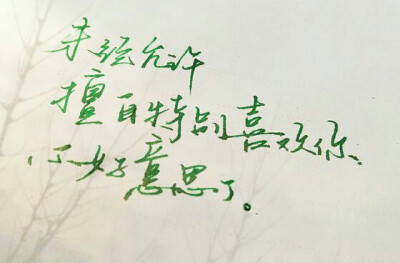 未经允许
擅自特别喜欢你
不好意思了。